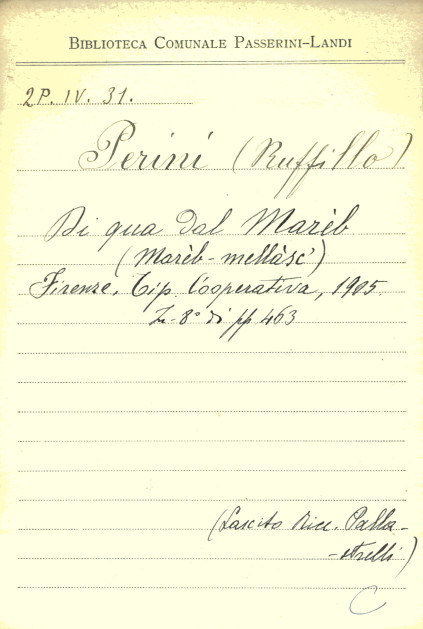 BIBLIOTECA COMUNALE PASSERINI-LANDI
2P. IV. 31.
Perini (Ruffillo)
Di qua dal Marèb
(Marèb-mellàsc')
Firenze. Tip. Cooperativa, 1905
In-8° di pp 463
(Lascito Ricc. Palla-
-strelli)
C